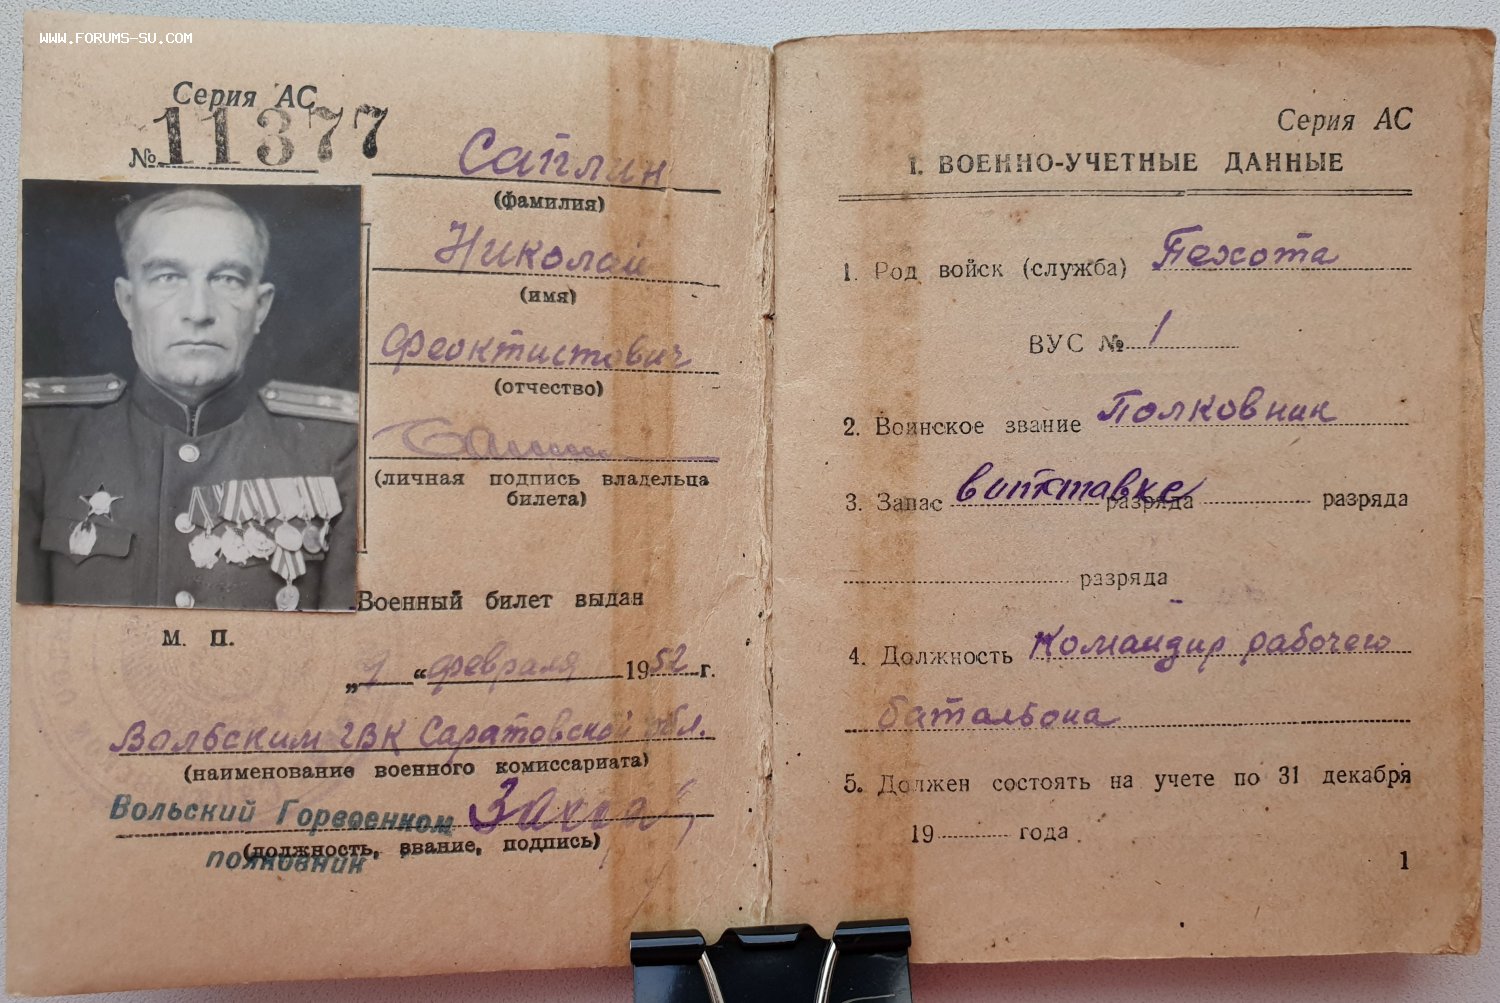 WWW.FORUMS-SU.COM
Серия АС
№ 11377
Саплин
(фамилия)
Николай
(имя)
Феоктистович
(отчество)
(личная подпись владельца
билета)
Военный билет выдан
М. П.
„9“ февраля 1952 г.
Вольским ГВК Саратовской обл.
(наименование военного комиссариата)
Вольский Горвоенком
(должность, звание, подпись)
полковник
Серия АС
1. ВОЕННО-УЧЕТНЫЕ ДАННЫЕ
1. Род войск (служба) Пехота
ВУС № 1
2. Воинское звание Полковник
3. Запас в отставке разряда разряда
разряда
4. Должность Командир рабочего
батальона
5. Должен состоять на учете по 31 декабря
19 года
1